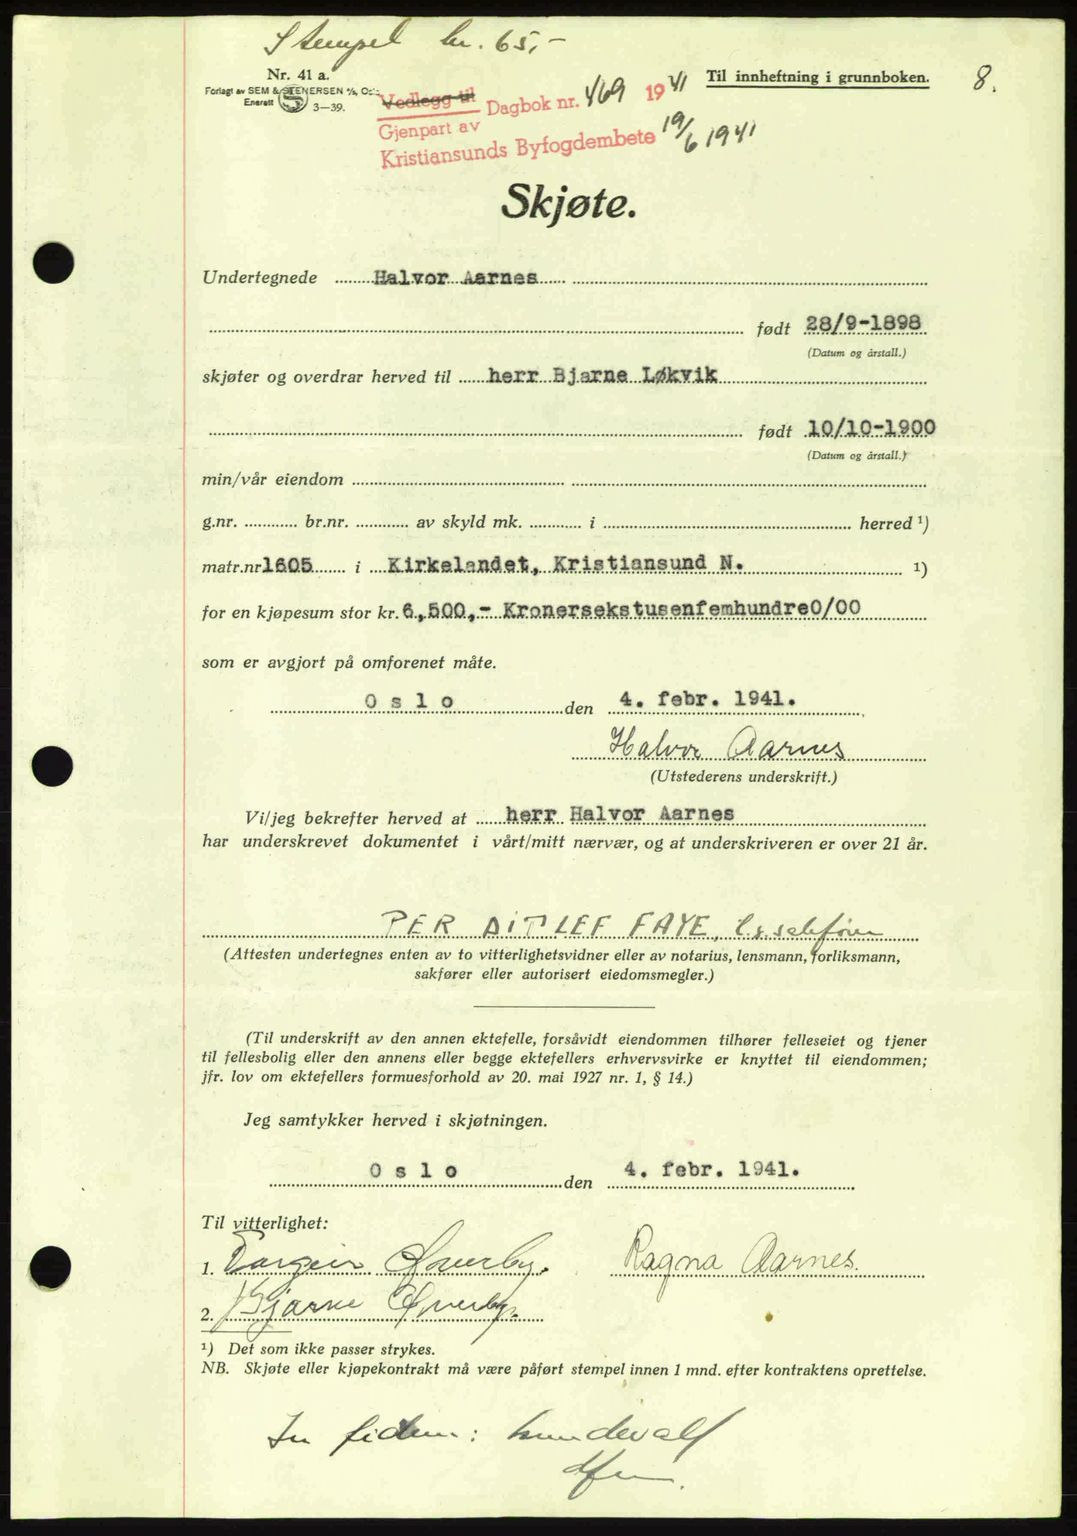 Stempel kr. 65,-
Nr. 41 a.
Forlagt av SEM & STENERSEN A/S, Oslo
Enerett 3—39.
Vedlegg til
Gjenpart av
Dagbok nr. 469 1941
Kristiansunds Byfogdembete 19/6 1941
Til innheftning i grunnboken.
8.
Skjøte.
Undertegnede Halvor Aarnes
født 28/9-1898
(Datum og årstall.)
skjøter og overdrar herved til herr Bjarne Løkvik
født 10/10-1900
(Datum og årstall.)
min/vår eiendom
g.nr. br.nr. av skyld mk. i herred ¹)
matr.nr 1605 i Kirkelandet, Kristiansund N. ¹)
for en kjøpesum stor kr. 6,500,- Kronersekstusenfemhundre0/00
som er avgjort på omforenet måte.
Oslo den 4. febr. 1941.
Halvor Aarnes
(Utstederens underskrift.)
Vi/jeg bekrefter herved at herr Halvor Aarnes
har underskrevet dokumentet i vårt/mitt nærvær, og at underskriveren er over 21 år.
PER DITLEF FAYE,
(Attesten undertegnes enten av to vitterlighetsvidner eller av notarius, lensmann, forliksmann,
sakfører eller autorisert eiedomsmegler.)
(Til underskrift av den annen ektefelle, forsåvidt eiendommen tilhører felleseiet og tjener
til fellesbolig eller den annens eller begge ektefellers erhvervsvirke er knyttet til eiendommen;
jfr. lov om ektefellers formuesforhold av 20. mai 1927 nr. 1, § 14.)
Jeg samtykker herved i skjøtningen.
Oslo den 4. febr. 1941.
Til vitterlighet:
1. Øverby. Ragna Aarnes.
2. Bjarne Øverby.
¹) Det som ikke passer strykes.
NB. Skjøte eller kjøpekontrakt må være påført stempel innen 1 mnd. efter kontraktens oprettelse.
In fidem: